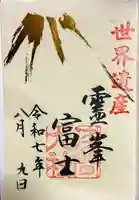 世界遺産
霊峯
富士
令和七年
八月九日